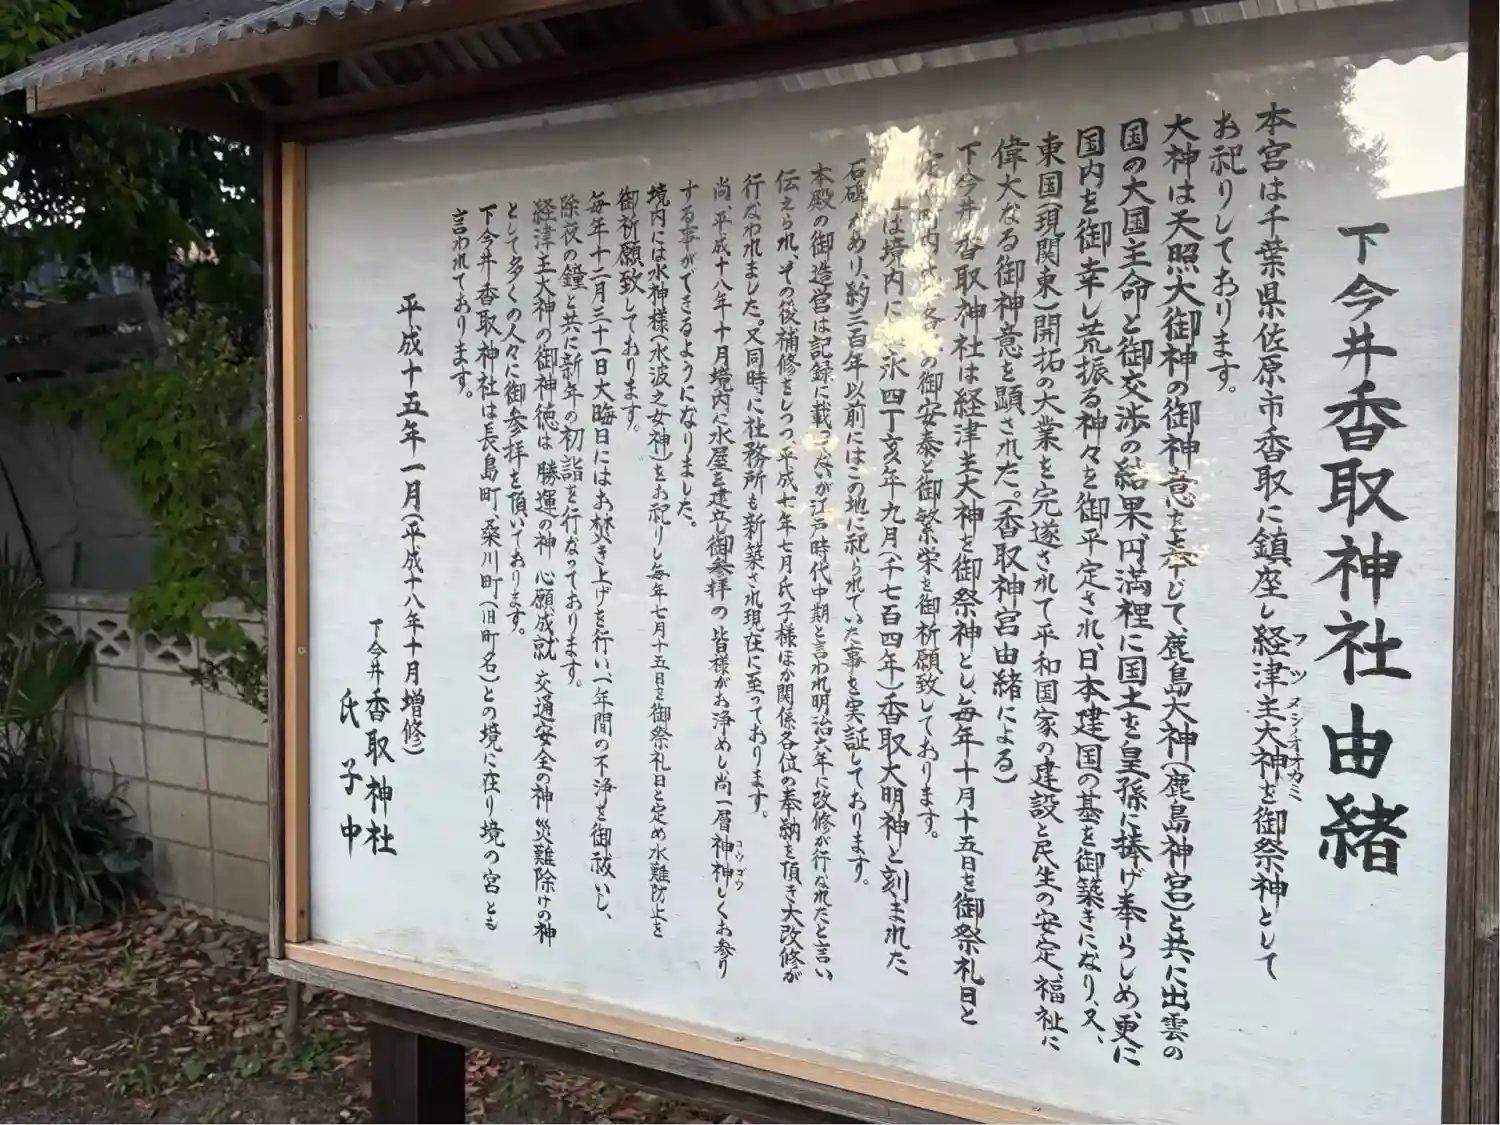 下今井香取神社由緒
本宮は千葉県佐原市香取に鎮座し経津主大神を御祭神として
フツヌシノオオカミ
お祀りしております。
大神は天照大御神の御神意を奉じて鹿島大神(鹿島神宮)と共に出雲の
国の大国主命と御交渉の結果円満裡に国土を皇孫に捧げ奉らしめ、更に
国内を御幸し荒振る神々を御平定され、日本建国の基を御築きになり、又、
東国(現関東)開拓の大業を完遂されて平和国家の建設と民生の安定、福祉に
偉大なる御神意を顕された。(香取神宮由緒による)
下今井香取神社は経津主大神を御祭神とし、毎年十月十五日を御祭礼日と
の御安泰と御繁栄を御祈願致しております。
は境内に 永四丁亥年九月(千七百四年)香取大明神と刻まれた
石碑があり、約三百年以前にはこの地に祀られていた事を実証しております。
本殿の御造宮は記録に載ってないが江戸時代中期と言われ明治六年に改修が行なれたと言い
伝えられ、その後補修をしつつ平成七年七月氏子様ほか関係各位の奉納を頂き大改修が
行なわれました。又同時に社務所も新築され現在に至っております。
尚、平成十八年十月境内に水屋を建立し御参拝の皆様がお浄めし尚一層神神しくお参り
コウゴウ
する事ができるようになりました。
境内には水神様(水波之女神)をお祀りし毎年七月十五日を御祭礼日と定め水難防止を
御祈願致しております。
毎年十二月三十一日大晦日にはお焚き上げを行い、一年間の不浄を御祓いし、
除夜の鐘と共に新年の初詣を行なっております。
経津主大神の御神徳は 勝運の神 心願成就 交通安全の神 災難除けの神
として多くの人々に御参拝を頂いております。
下今井香取神社は長島町、桑川町(旧町名)との境に在り境の宮とも
言われております。
平成十五年一月(平成十八年十月増修)
下今井香取神社
氏子中